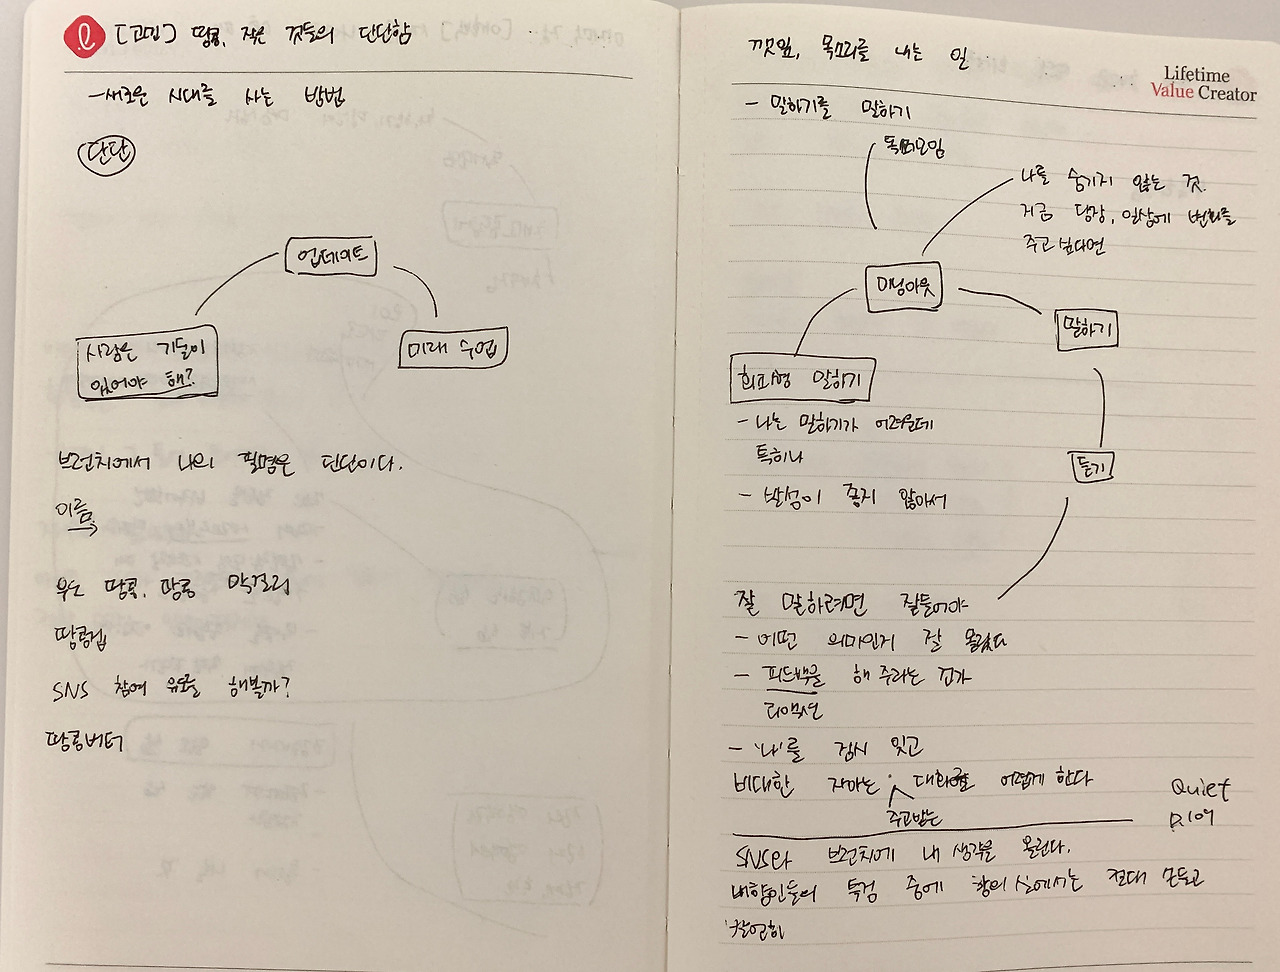 [고민] 땅콩, 작은 것들의 단단함
-새로운 시대를 사는 방법
단단
업데이트
사람은 기둘이
있어야 해?
미래 수업
브런치에서 나의 필명은 단단이다.
이름
우도 땅콩, 땅콩 막걸리
땅콩잼
SNS 참여 유도를 해볼까?
땅콩버터
깻잎, 목소리를 내는 일
Lifetime
Value Creator
- 말하기를 말하기
독서모임
나를 숨기지 않는 것.
지금 당장, 일상에 변화를
주고 싶다면
미닝아웃
말하기
회피형 말하기
- 나는 말하기가 어려운데
특히나
- 발성이 좋지 않아서
듣기
잘 말하려면 잘들어야
- 어떤 의미인지 잘 몰랐다
- 피드백을 해 주라는 건가
리액션
- '나'를 잠시 잊고
비대한 자아는 대화를 어렵게 한다
주고받는
Quiet
p.109
SNS와 브런치에 내 생각을 올린다.
내향인들의 특검 중에 강의실에서는 절대 손들고